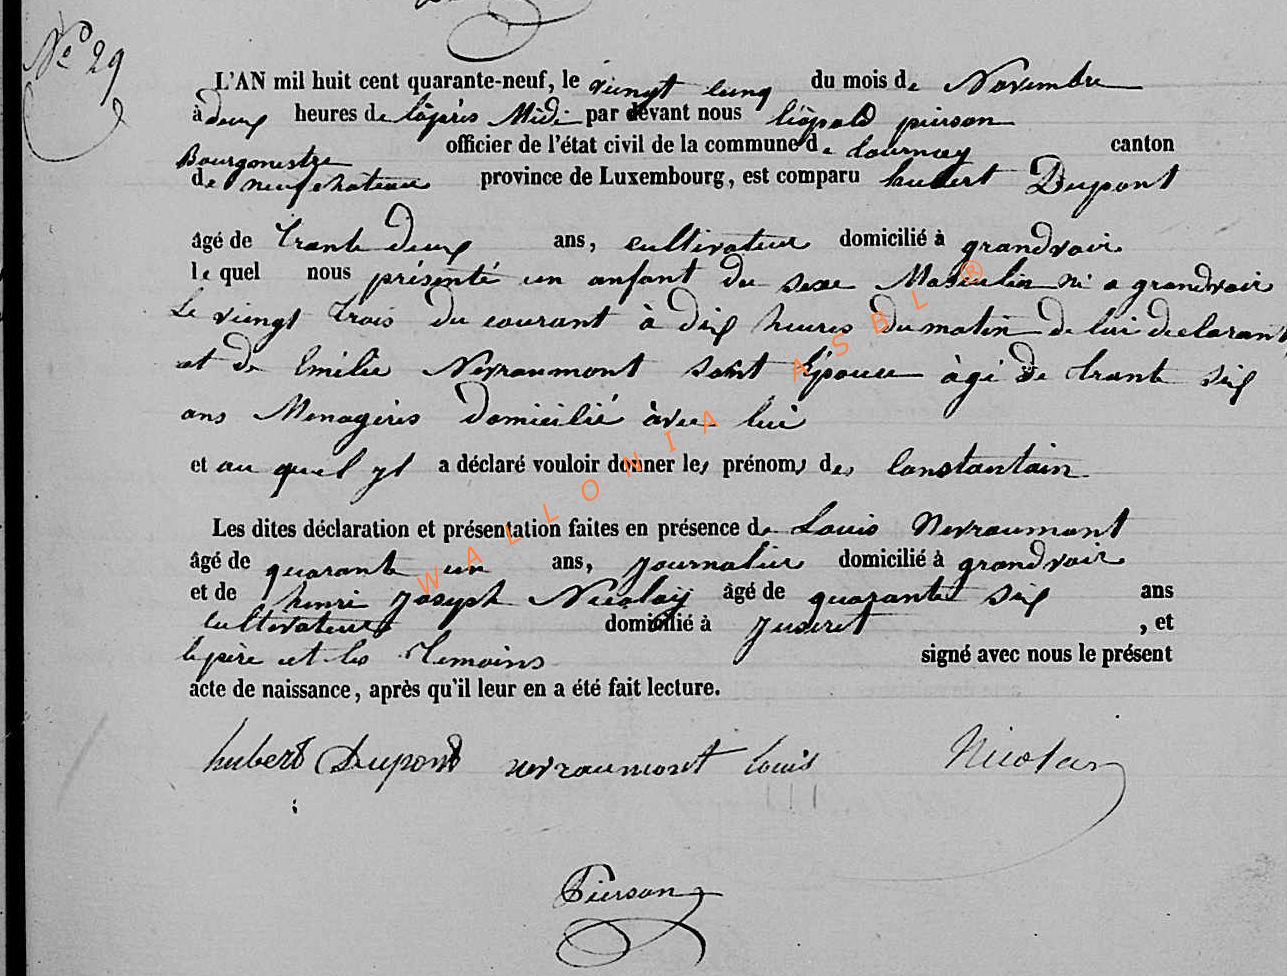 N.º 29
L'AN mil huit cent quarante-neuf, le vingt cinq du mois de Novembre
à deux heures de l'après Midi par devant nous léopold pierson
Bourgmestre officier de l'état civil de la commune de tournay canton
de neufchateau province de Luxembourg, est comparu hubert Dupont
âgé de trante deux ans, cultivateur domicilié à grandvoir
le quel nous présenté un anfant du sexe Masculin né a grandvoir
Le vingt trois du courant à dix heures du matin de lui declarant
et de Emélie Nevraumont sont Epouse âgé de trante six
ans Menagère Domicilié àvec lui
et au quel yl a déclaré vouloir donner les prénoms de Constantain
Les dites déclaration et présentation faites en présence de Louis Nevraumont
âgé de quarante un ans, journalier domicilié à grandvoir
et de henri joseph Nicolay âgé de quarante six ans
cultivateur domicilié à juseret , et
le père et les Temoins signé avec nous le présent
acte de naissance, après qu'il leur en a été fait lecture.
hubert Dupont nevraumont Louis Nicolay
Pierson
WALLONIA ASBL ®